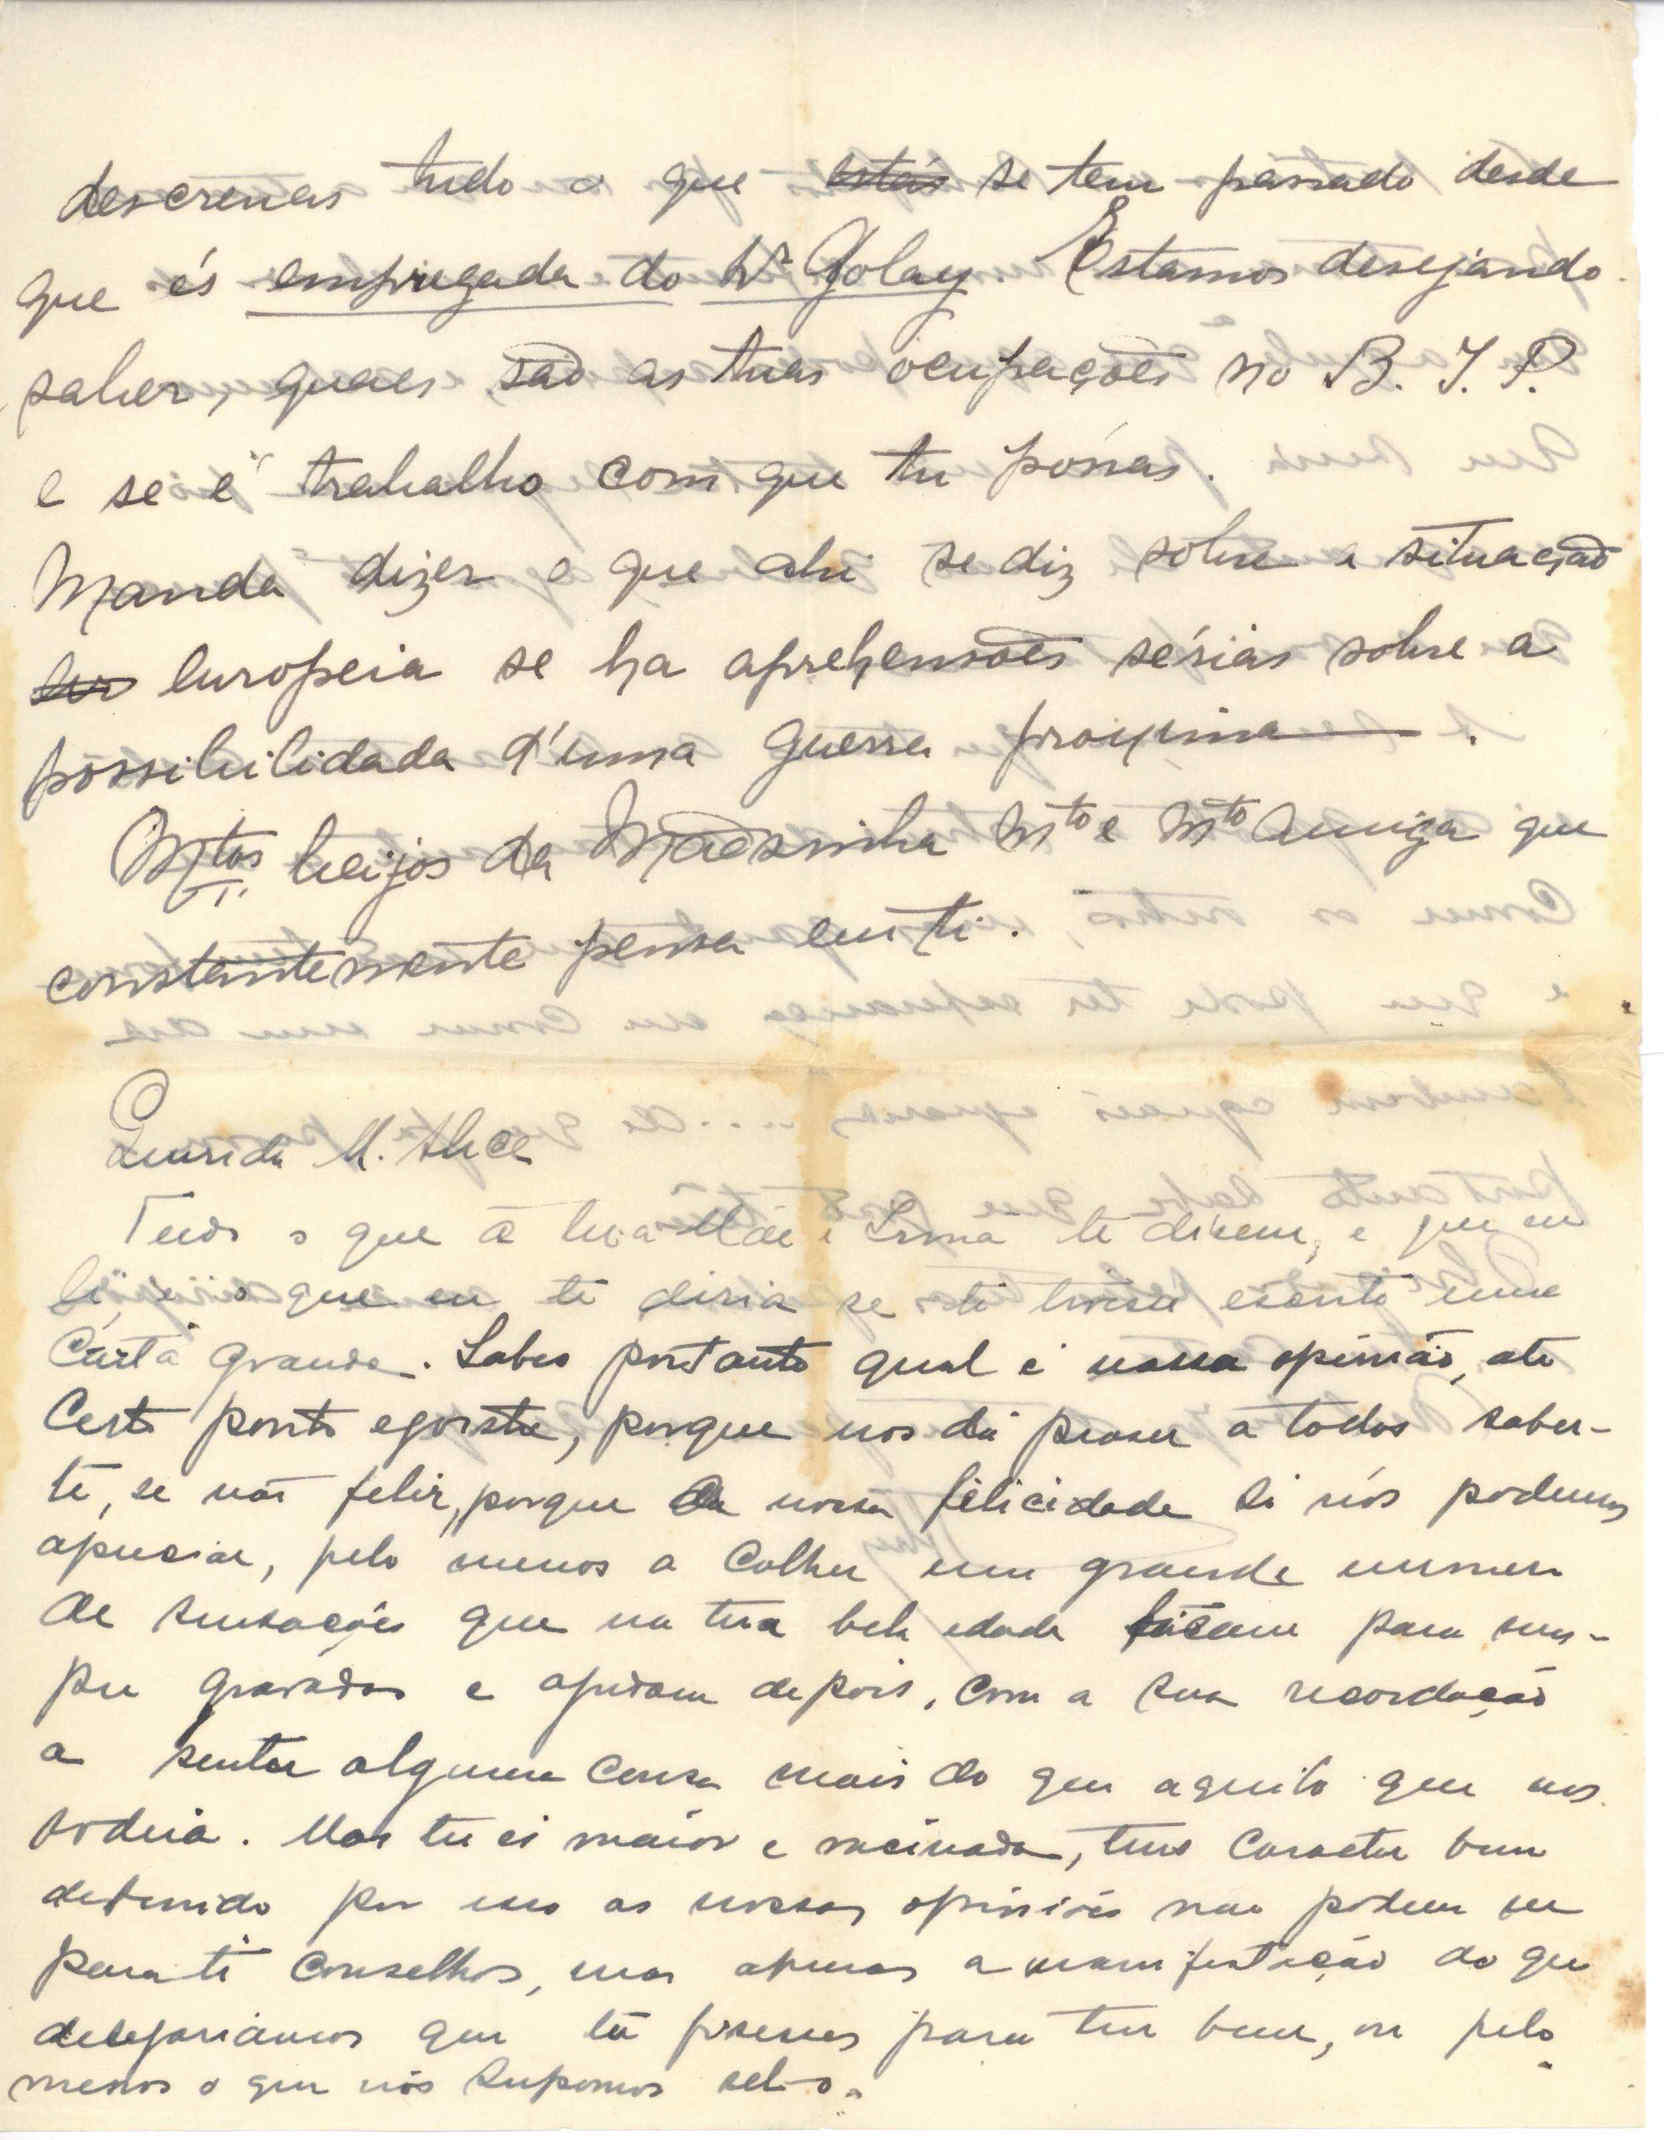 descrevas tudo o que estás se tem passado desde
que és empregada do Dr Golay. Estamos desejando
saber, quaes, são as tuas ocupações no B. I. P.
e se é trabalho com que tu possas.
Manda dizer o que ahi se diz sobre a situação
eur europeia se ha aprehensões sérias sobre a
possibilidada d'uma guerra proxima.
Mtos beijos da Mãesinha Mto e Mto amiga que
constantemente pensa em ti.
Querida M. Alice
Tudo o que a tua Mãe e Irma te dizem, e que eu
li, é o que eu te diria se te tivesse escrito uma
Carta grande. Sabes portanto qual é nossa opinião, ate
Certo ponto egoista, porque nos dá praser a todos saber-
te, se não feliz, porque da nossa felicidade só nós podemos
apreciar, pelo menos a Colher um grande numero
de sensações que na tua bela edade ficam para sem-
pre gravadas e ajudam depois, com a sua recordação
a sentir alguma Cousa mais do que aquilo que nos
rodeia. Mas tu és maior e vacinada, tens Caracter bem
definido por isso as nossas opiniões nao podem ser
para ti Conselhos, mas apenas a manifestação do que
desejariamos que tu fisesses para teu bem, ou pelo
menos o que nós supomos sel-o.